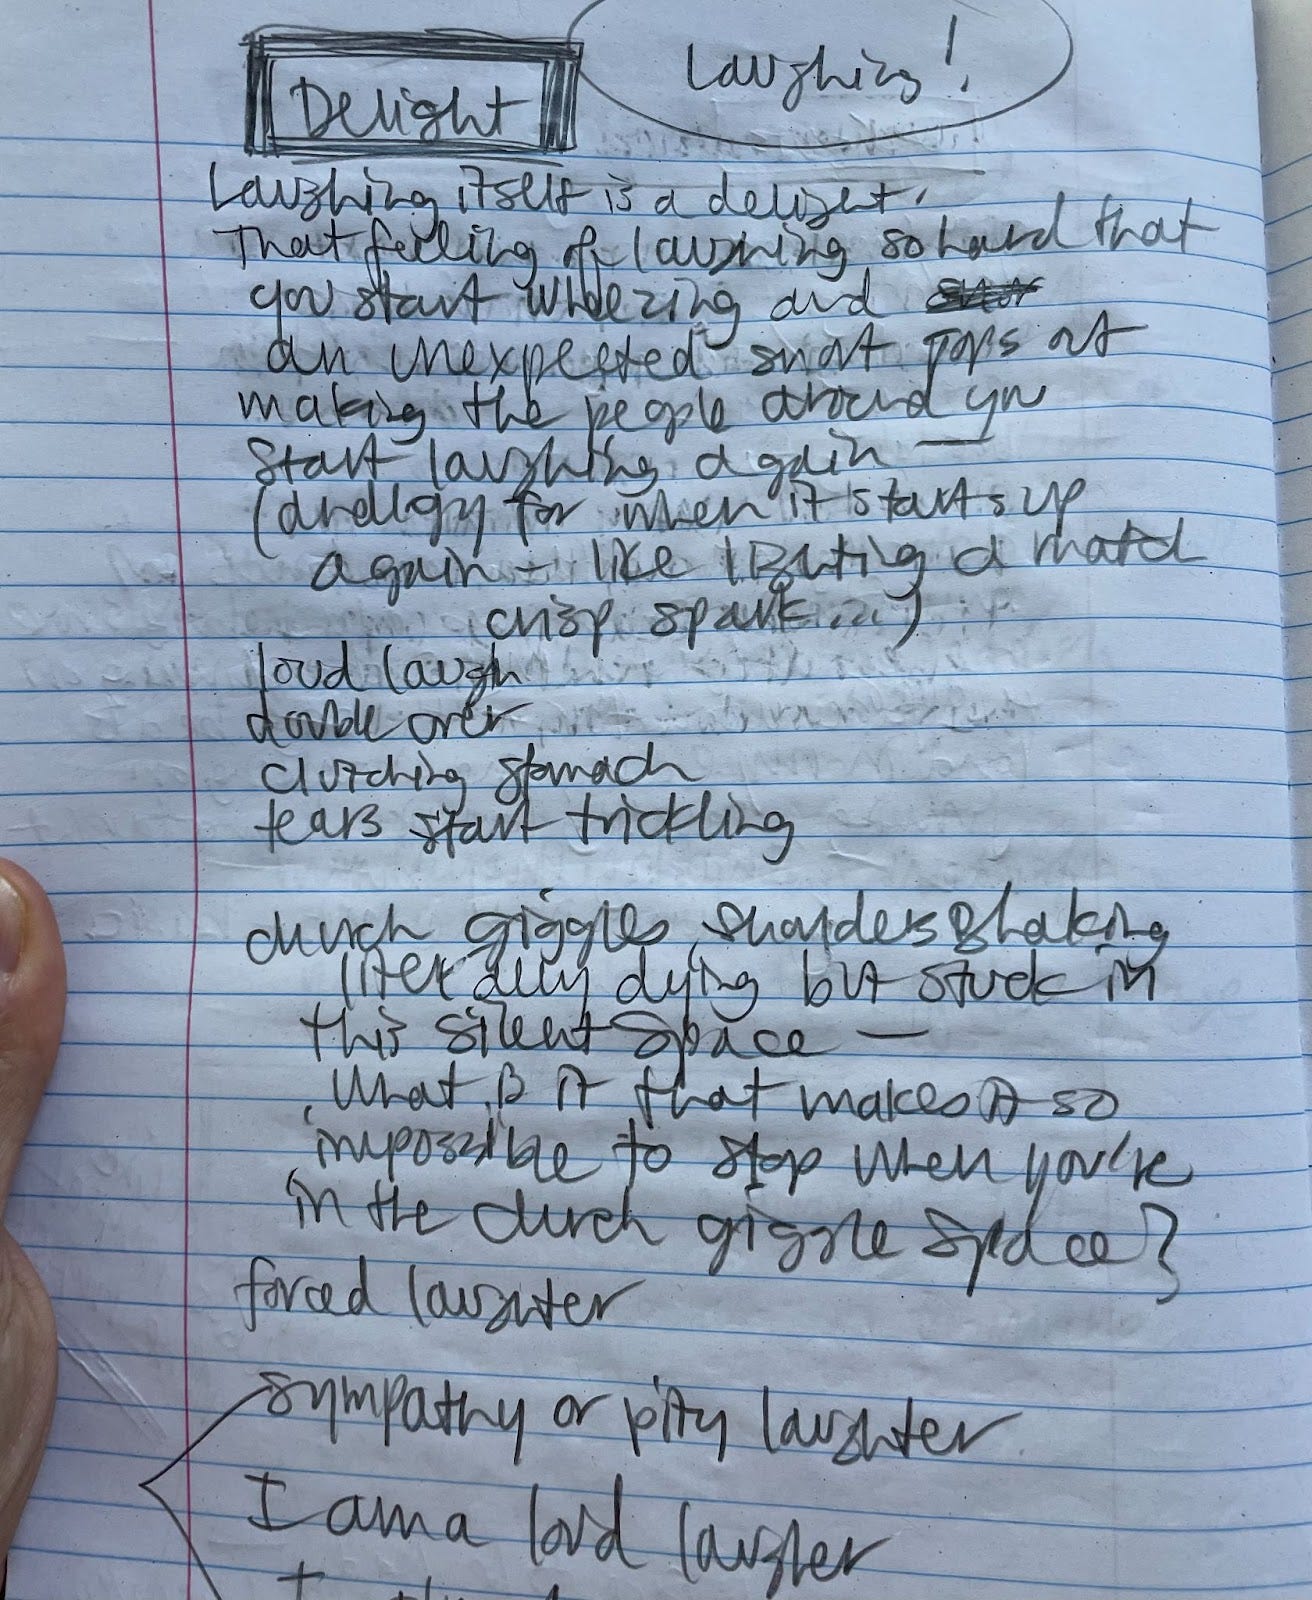 Delight
Laughing!
Laughing itself is a delight.
That feeling of laughing so hard that
you start wheezing and
an unexpected snort pops out
making the people around you
start laughing again —
(analogy for when it starts up
again - like lighting a match
crisp spark...)
loud laugh
double over
clutching stomach
tears start trickling
church giggles, shoulders shaking
literally dying but stuck in
this silent space —
What is it that makes it so
impossible to stop when you're
in the church giggle space?
forced laughter
sympathy or pity laughter
I am a loud laugher